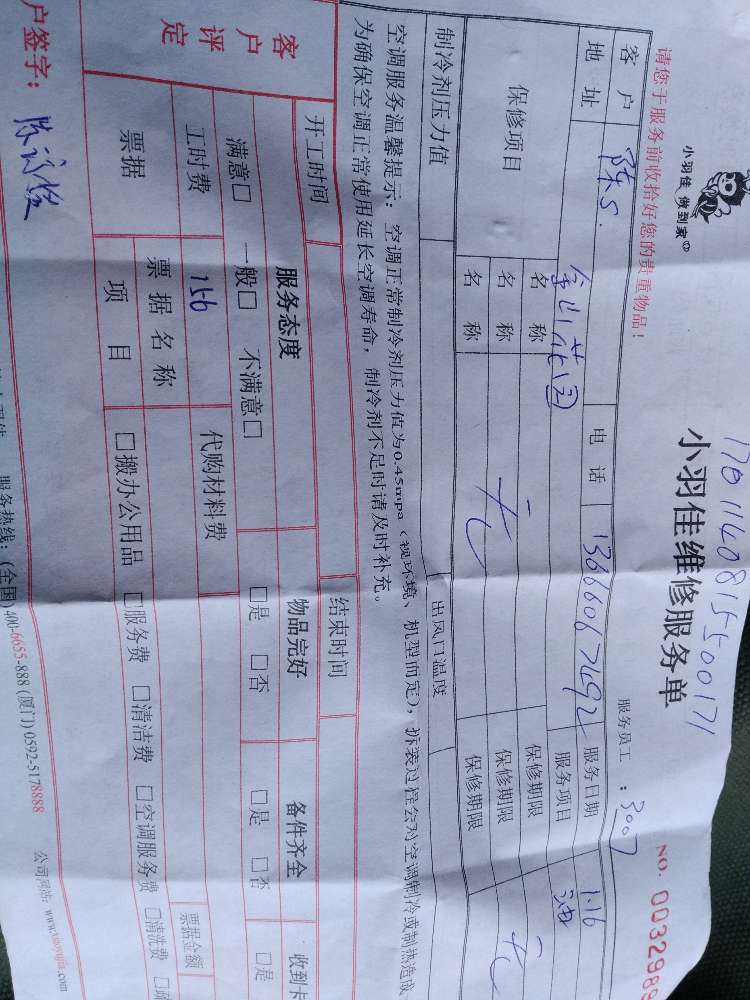 小羽佳 做到家
17011408155500171
小羽佳维修服务单
请您于服务前收拾好您的贵重物品!
服务员工:3007
NO. 0032989
客户 陈S. 电话 13666067492 服务日期 1.16
地址 金山花园 服务项目
保修项目 名称 保修期限
名称 无 保修期限 无
名称 保修期限
制冷剂压力值 出风口温度
空调服务温馨提示:空调正常制冷剂压力值为0.45mpa(视环境、机型而定),拆装过程会对空调制冷或制热造成
为确保空调正常使用延长空调寿命,制冷剂不足时请及时补充。
开工时间 结束时间
客户评定 服务态度 物品完好 备件齐全 收到卡
满意□ 一般□ 不满意□ □是 □否 □是 □否 □是
工时费 156 代购材料费
票据 票据名称 票据金额
项目 □搬办公用品 □服务费 □清洁费 □空调服务费 □清洗费
户签字:
服务热线:(全国)400-6655-888 (厦门) 0592-5178888
公司网站:www.xiaoyujia.com